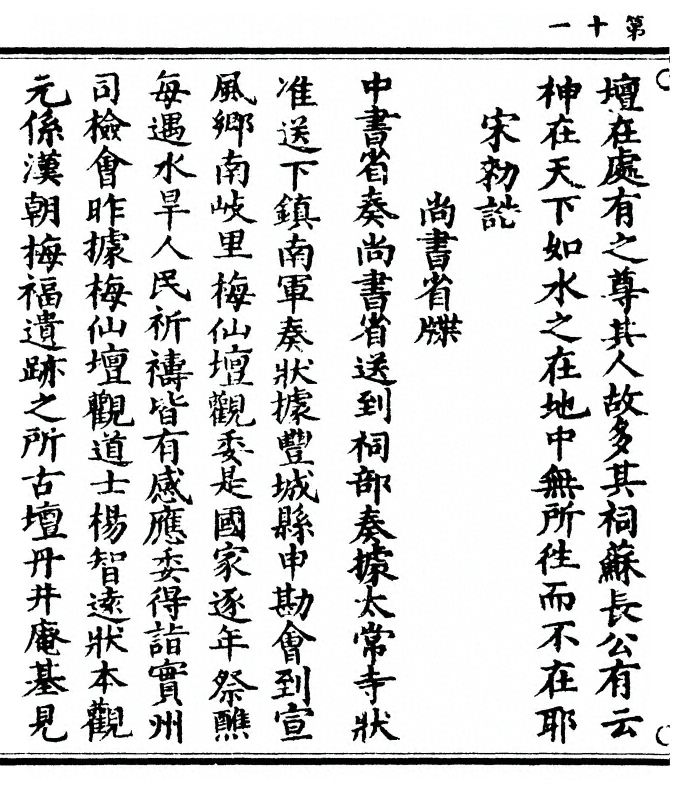 第十一
壇在處有之尊其人故多其祠蘇長公有云
神在天下如水之在地中無所往而不在耶
宋勑誥
尚書省牒
中書省奏尚書省送到祠部奏據太常寺狀
准送下鎮南軍奏狀據豐城縣申勘會到宣
風鄉南岐里梅仙壇觀委是國家逐年祭醮
每遇水旱人民祈禱皆有感應委得詣實州
司檢會昨據梅仙壇觀道士楊智遠狀本觀
元係漢朝梅福遺跡之所古壇丹井庵基見